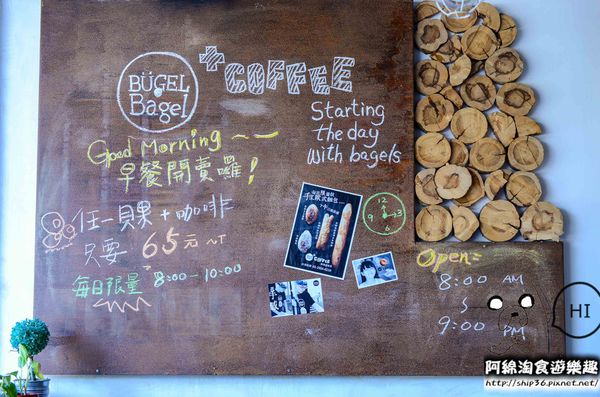 BÜGEL
Bagel
+COFFEE
Starting
the day
with bagels
Good Morning ~~
早餐開賣囉!
任一貝果 + 咖啡
只要 65元 ~T
每日限量 8:00 - 10:00
12
9
3
6
Open=
8:00 AM
9:00 PM
HI
阿綿淘食遊樂趣
http://ship36.pixnet.net/